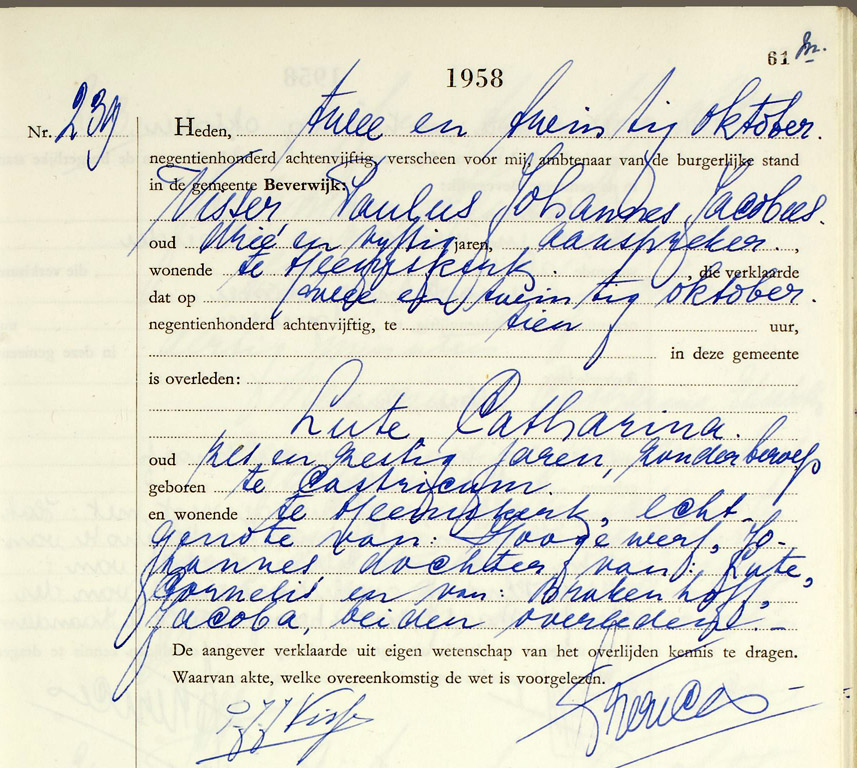 61
1958
Nr. 239 Heden, twee en twintig oktober.
negentienhonderd achtenvijftig, verscheen voor mij, ambtenaar van de burgerlijke stand
in de gemeente Beverwijk:
Visser Paulus Johannes Jacobus.
oud drie en vijftig jaren, aanspreker.,
wonende te Heemskerk. , die verklaarde
dat op twee en twintig oktober.
negentienhonderd achtenvijftig, te tien uur,
in deze gemeente
is overleden:
Lute Catharina.
oud zes en zestig jaren, zonder beroep
geboren te Castricum.
en wonende te Heemskerk, echt-
genote van: Hoogewerf, Jo-
hannes, dochter van: Lute,
Cornelis, en van: Brakenhoff,
Jacoba, beiden overleden.-
De aangever verklaarde uit eigen wetenschap van het overlijden kennis te dragen.
Waarvan akte, welke overeenkomstig de wet is voorgelezen.
PJJ Visser